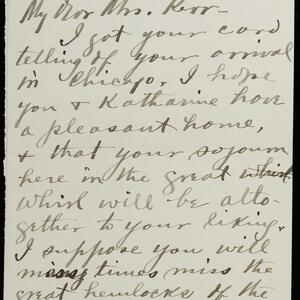 My Dear Mrs. Kerr—
I got your card
telling of your arrival
in Chicago. I hope
you & Katharine have
a pleasant home,
& that your sojourn
here in the great whirl
whirl will be alto-
gether to your liking.
I suppose you will
many times miss the
great hemlocks of the